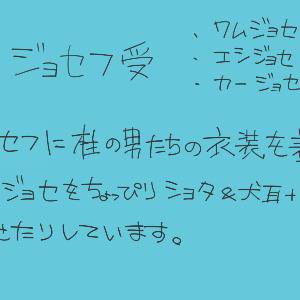 ジョセフ受
、ワムジョセ
・エシジョセ
・カージョセ
セフに柱の男たちの衣装を着
ジョセをちょっぴりショタ&犬耳+
せたりしています。